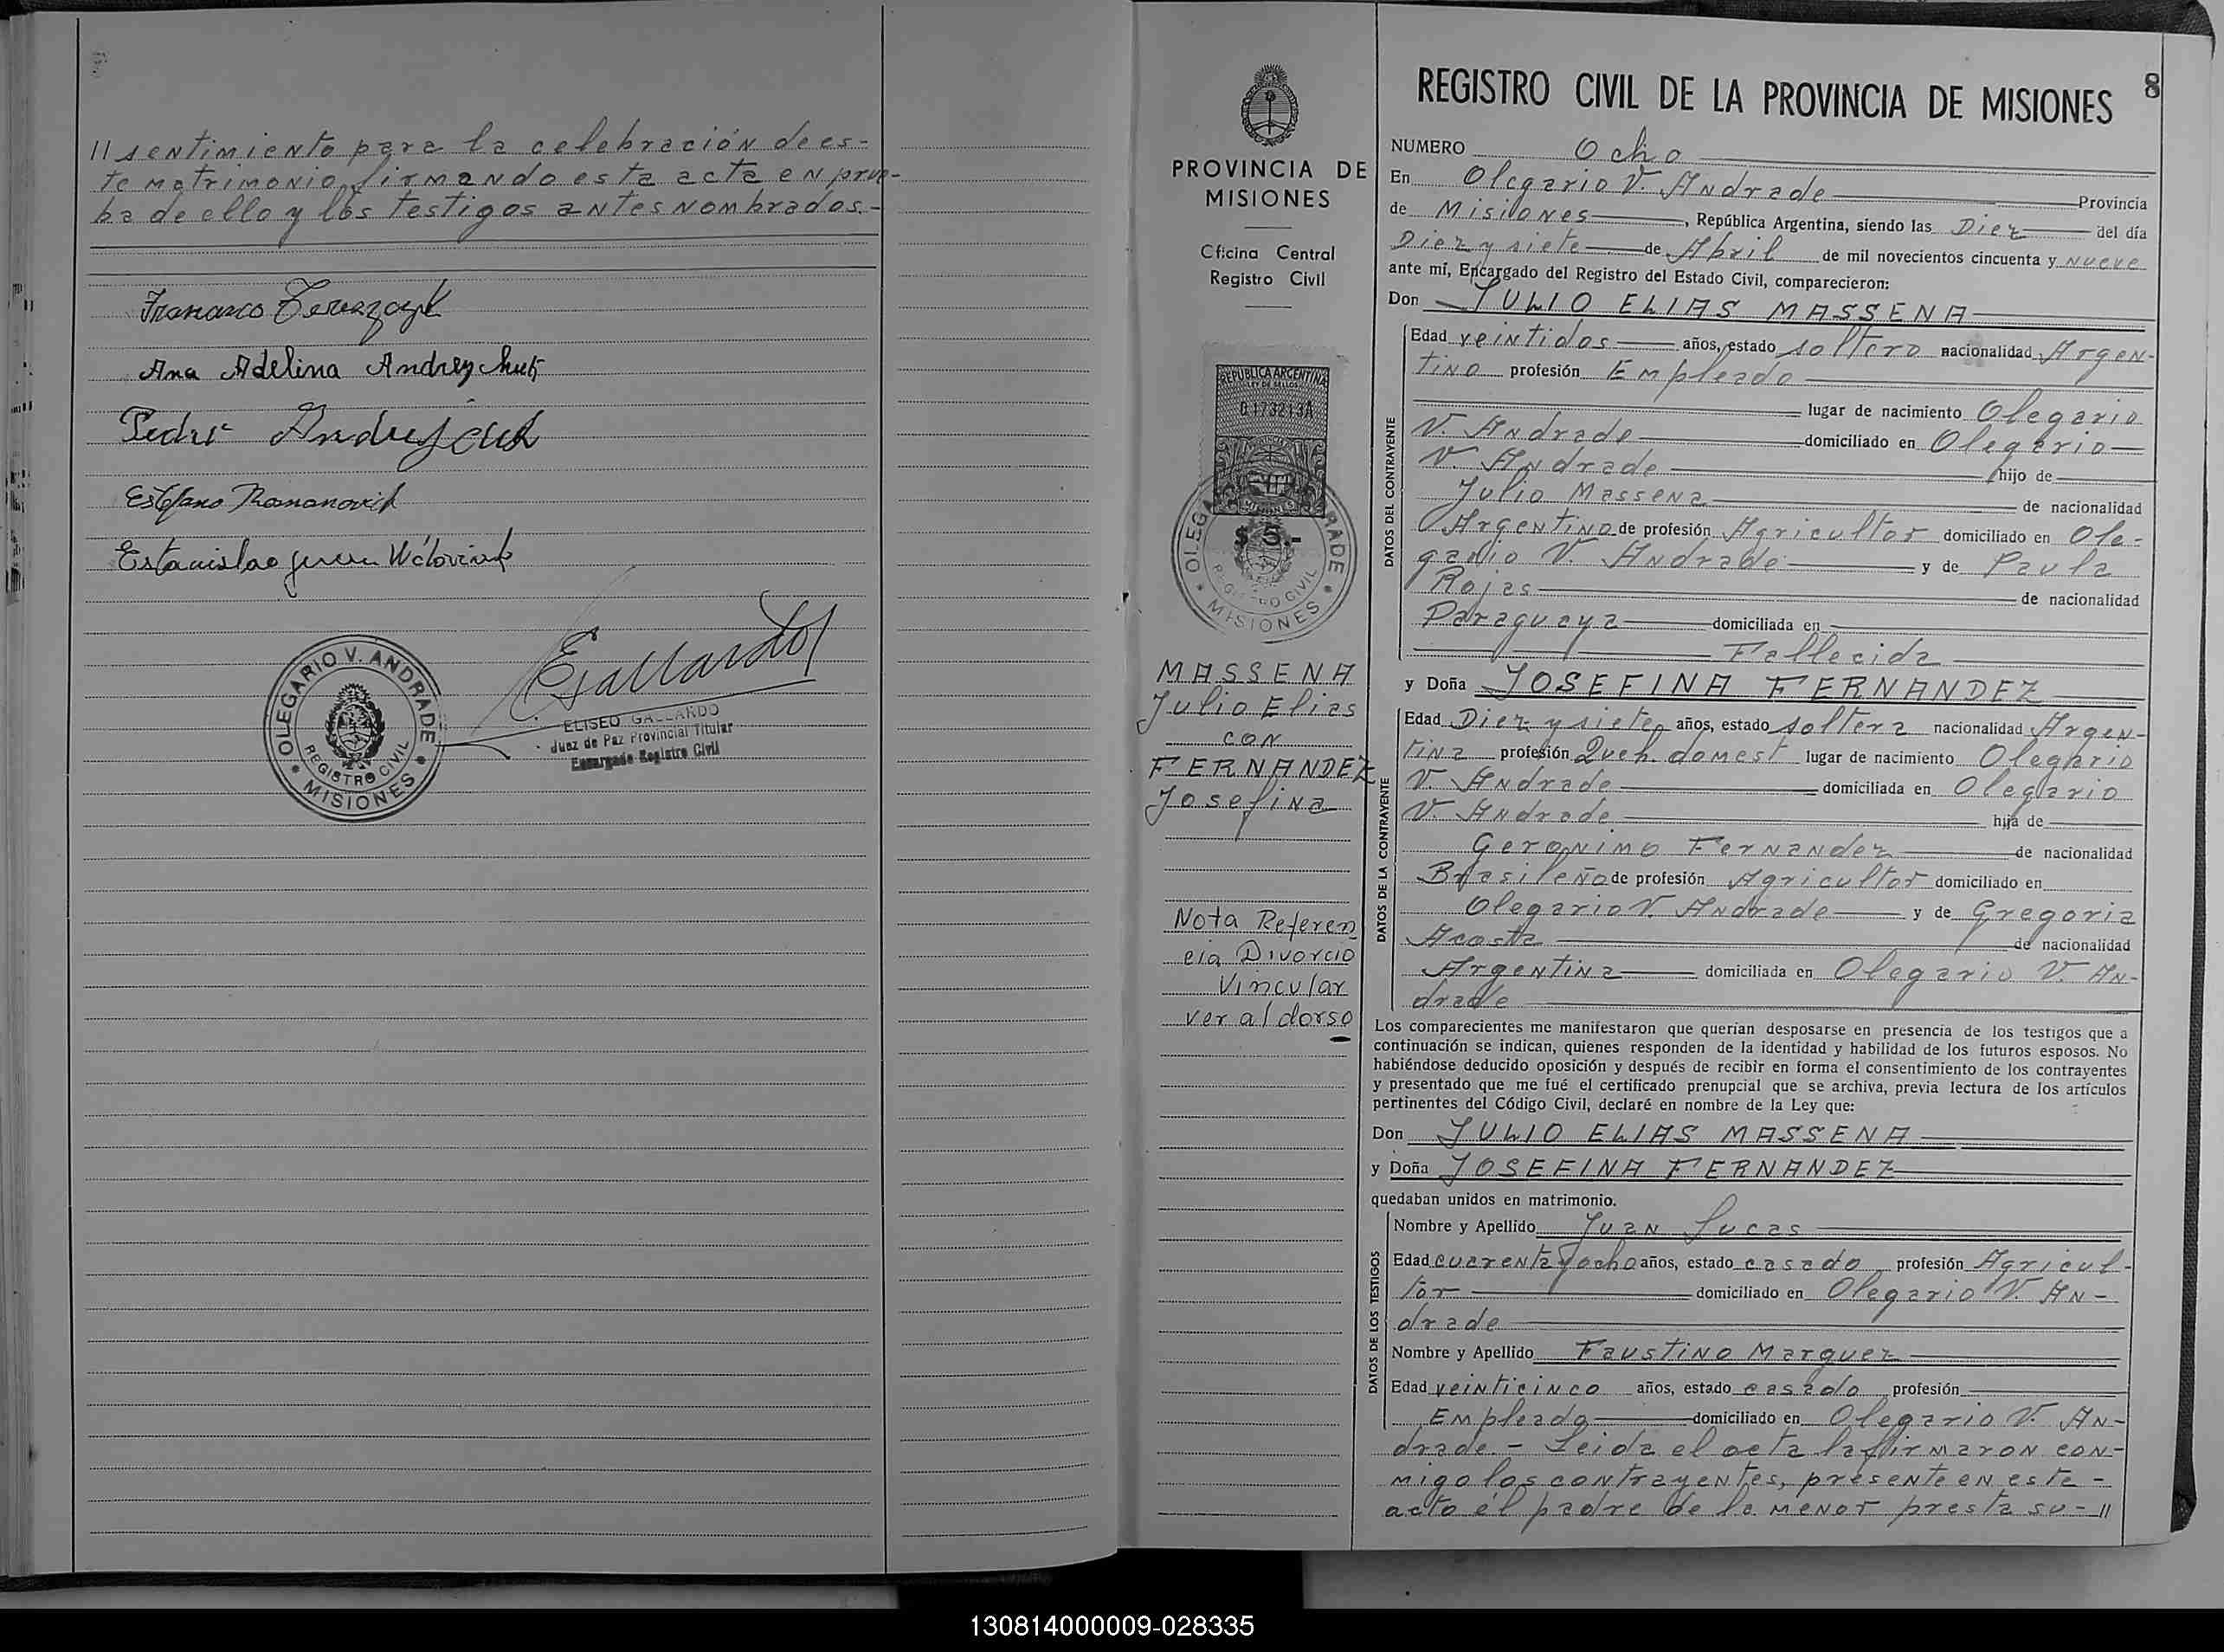 //sentimiento para la celebración de es-
te matrimonio, firmando esta acta en prue-
ba de ello y los testigos antes nombrados.-
Francisco
Ana Adelina Andreychuk
Pedro
Estefano Romanovich
Estanislao Juan
OLEGARIO V. ANDRADE
REGISTRO CIVIL
* MISIONES *
EGallardo
ELISEO GALLARDO
Juez de Paz Provincial Titular
Encargado Registro Civil
PROVINCIA DE
MISIONES
Oficina Central
Registro Civil
REPUBLICA ARGENTINA
LEY DE SELLOS
0173213A
MISIONES
$ 5.-
OLEGA RADE
REGISTRO CIVIL
* MISIONES *
MASSENA
Julio Elias
con
FERNANDEZ
Josefina
Nota Referen
cia Divorcio
Vincular
ver al dorso
REGISTRO CIVIL DE LA PROVINCIA DE MISIONES 8
NUMERO Ocho
En Olegario V. Andrade Provincia
de Misiones, República Argentina, siendo las Diez del día
Diez y siete de Abril de mil novecientos cincuenta y nueve
ante mí, Encargado del Registro del Estado Civil, comparecieron:
Don JULIO ELIAS MASSENA
DATOS DEL CONTRAYENTE
Edad veintidos años, estado soltero nacionalidad Argen-
tino profesión Empleado
lugar de nacimiento Olegario
V. Andrade domiciliado en Olegario
V. Andrade hijo de
Julio Massena de nacionalidad
Argentino de profesión Agricultor domiciliado en Ole-
gario V. Andrade y de Paula
Rojas de nacionalidad
Paraguaya domiciliada en
Fallecida
y Doña JOSEFINA FERNANDEZ
DATOS DE LA CONTRAYENTE
Edad Diez y siete años, estado soltera nacionalidad Argen-
tina profesión Queh. domest lugar de nacimiento Olegario
V. Andrade domiciliada en Olegario
V. Andrade hija de
Geronimo Fernandez de nacionalidad
Brasileño de profesión Agricultor domiciliado en
Olegario V. Andrade y de Gregoria
Acosta de nacionalidad
Argentina domiciliada en Olegario V. An-
drade
Los comparecientes me manifestaron que querían desposarse en presencia de los testigos que a
continuación se indican, quienes responden de la identidad y habilidad de los futuros esposos. No
habiéndose deducido oposición y después de recibir en forma el consentimiento de los contrayentes
y presentado que me fué el certificado prenupcial que se archiva, previa lectura de los artículos
pertinentes del Código Civil, declaré en nombre de la Ley que:
Don JULIO ELIAS MASSENA
y Doña JOSEFINA FERNANDEZ
quedaban unidos en matrimonio.
DATOS DE LOS TESTIGOS
Nombre y Apellido Juan Lucas
Edad cuarenta y ocho años, estado casado profesión Agricul-
tor domiciliado en Olegario V. An-
drade
Nombre y Apellido Faustino Marquez
Edad veinticinco años, estado casado profesión
Empleado domiciliado en Olegario V. An-
drade - Leida el acta la firmaron con-
migo los contrayentes, presente en este-
acto el padre de la menor presta su-//
130814000009-028335